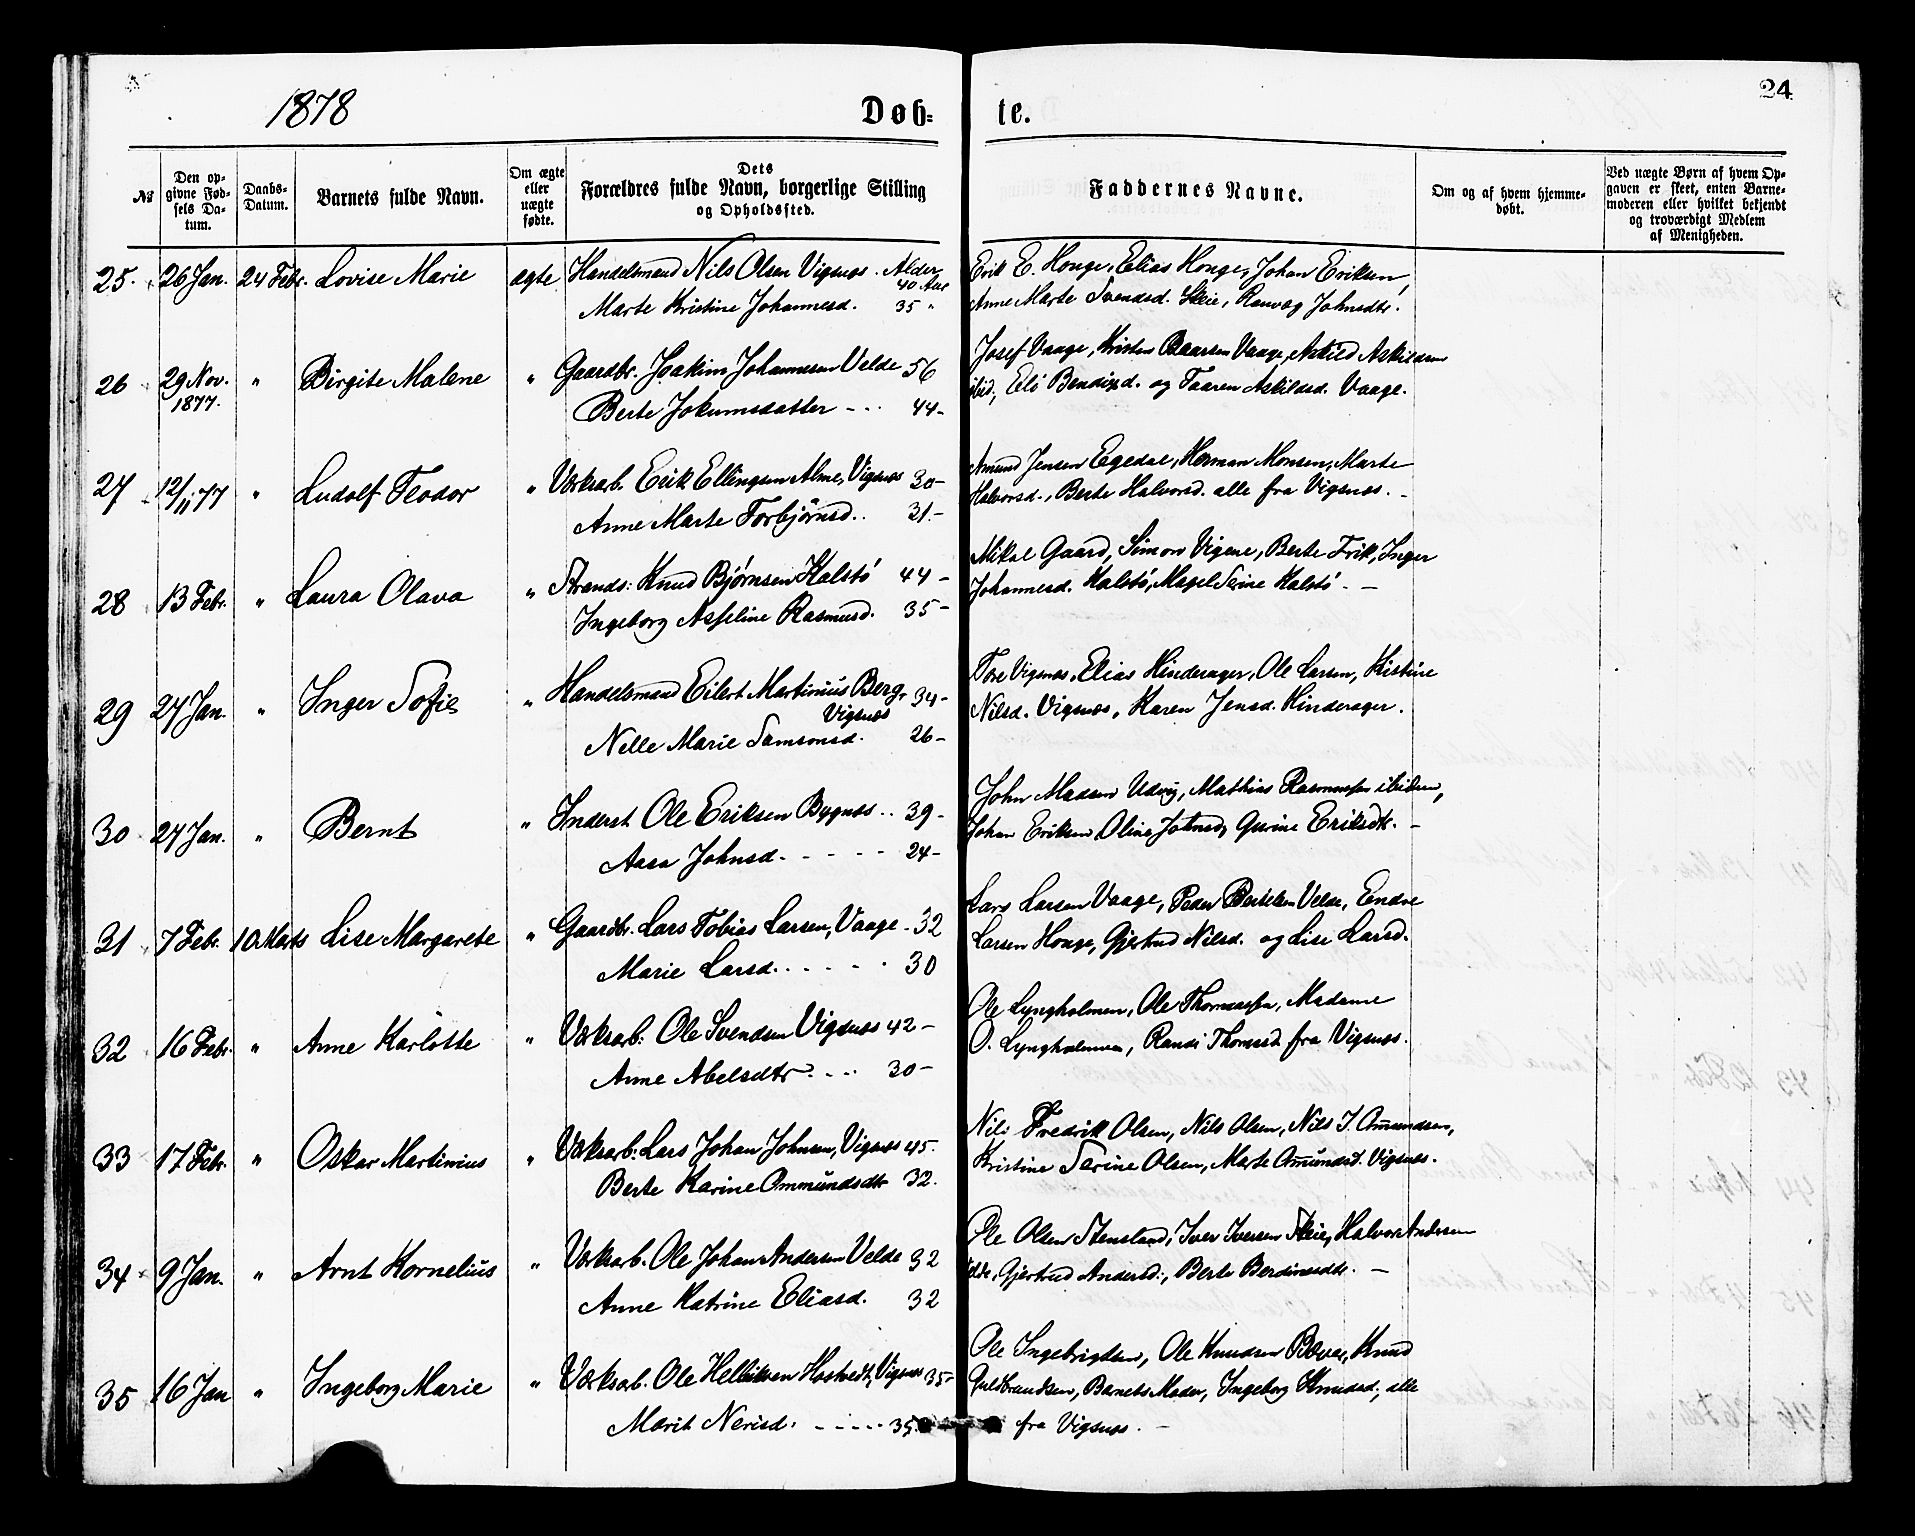 1878
Døb=
te.
24
№
Den op-
givne Fød-
sels Da-
tum.
Daabs-
Datum.
Barnets fulde Navn.
Om ægte
eller
uægte
fødte.
Dets
Forældres fulde Navn, borgerlige Stilling
og Opholdssted.
Faddernes Navne.
Om og af hvem hjemme-
døbt.
Ved uægte Børn af hvem Op-
gaven er skeet, enten Barne-
moderen eller hvilket bekjendt
og troværdigt Medlem
af Menigheden.
25. 26 Jan. 24 Febr. Lovise Marie ægte Handelsmand Nils Olsen Vigsnæs. Alder 40 Aar
Marte Kristine Johannesd. 35 "
Erik E. Houge, Elias Houge, Johan Eriksen,
Anne Marte Svendsd. Skeie, Ranvog Johnsdtr.
26 29 Nov. 1877. " Birgite Malene " Gaardbr. Joakim Johannessen Velde 56
Berte Jokumsdatter - .. 44-
Josef Vaage, Kristen Baarsen Vaage, Askild Askildsen
ibid, Eli Bendixd. og Taaren Askildsd. Vaage.
27 12/11 77 " Ludolf Teodor " Værksarb. Erik Ellingsen Alme, Vigsnæs 30-
Anne Marte Torbjörnsd.. 31.-
Amund Jensen Egedal, Herman Monsen, Marte
Halvorsd., Berte Halvorsd. alle fra Vigsnæs. -
28 13 Febr. " Laura Olava " Strands: Knud Bjørnsen Kalstö 44-
Ingeborg Asseline Rasmusd. 35-
Mikal Gaard, Simon Vigene, Berte Erik, Inger
Johannesd. Kalstö, Magel Serine Kalstö - -
29 27 Jan. " Inger Sofie " Handelsmand Eilert Martinius Berg, 34-
Vigsnæs
Nelle Marie Samsonsd. 26-
Tore Vigsnæs, Elias Hinderager, Ole Larsen, Kistine
Nilsd. Vigsnæs, Karen Jensd. Hinderager.
30 27 Jan. " Bernt " Inderst Ole Eriksen Bygnæs .. 39-
Aasa Johnsd. - - - - 24-
John Madsen Udvig, Mathias Rasmussen ibidem,
Johan Eriksen, Oline Johnsd, Gurine Eriksdtr. -
31 7 Febr. 10 Marts Lise Margarete " Gaardbr. Lars Tobias Larsen, Vaage - 32
Marie Larsd. . . . . . 30
Lars Larsen Vaage, Peder Bertelsen Velde, Endre
Larsen Houge, Gjertrud Nilsd. og Lise Larsd.
32 16 Febr. " Anne Karlotte " Værksarb: Ole Svendsen Vigsnæs 42-
Anne Abelsdtr . . .. 30-
Ole Lyngholmen, Ole Thomassen, Madame
O. Lyngholmen, Randi Thomasd fra Vigsnæs.
33 17 Febr. " Oskar Martinius " Værksarb: Lars Johan Johnsen, Vigsnæs 45.
Berte Karine Ommundsdtr 32.
Nils Fredrik Olsen, Nils Olsen, Nils J. Omundsen,
Kristine Serine Olsen, Marte Omundsd. Vigsnæs.
34 9 Jan. " Arnt Kornelius " Værksarb. Ole Johan Andersen Velde 32
Anne Katrine Eliasd. 32
Ole Olsen Stensland, Iver Iversen Skeie, Halvor Andersen
Velde, Gjertrud Andersd., Berte Berdinesdtr. -
35 16 Jan " Ingeborg Marie " Værksarb. Ole Helliksen Hostvedt, Vigsnæs 35-
Marit Nerisd. - - - - - 35.
Ole Ingebrigtsen, Ole Knudsen Bævre, Knud
Guldbrandsen, Barnets Moder, Ingeborg Knudsd., alle
fra Vigsnæs. -